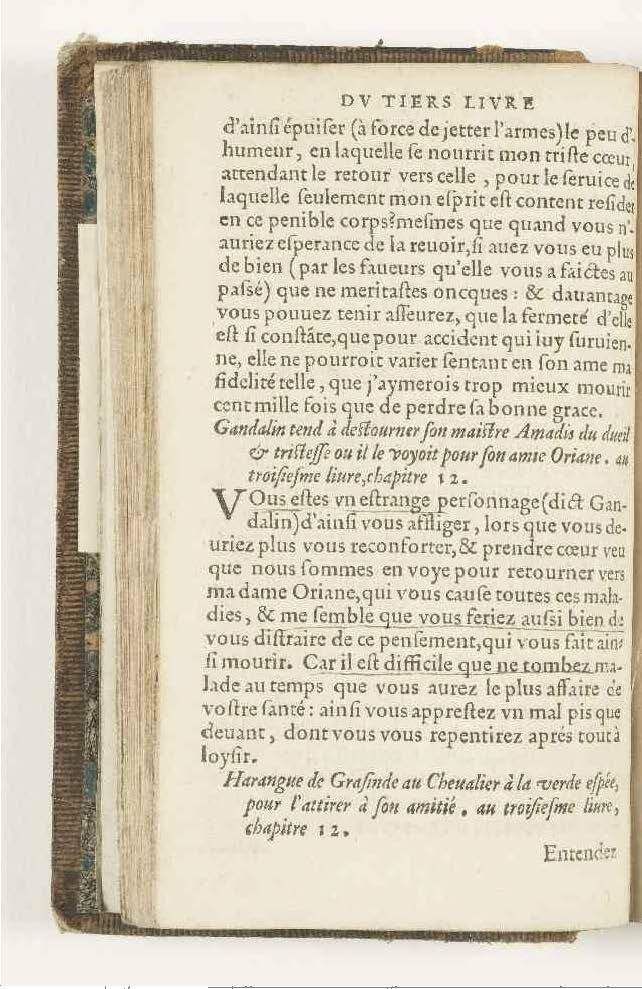 DV TIERS LIVRE
d'ainſi épuiſer (à force de jetter l'armes) le peu d'-
humeur, en laquelle ſe nourrit mon triſte cœur,
attendant le retour vers celle, pour le ſeruice de
laquelle ſeulement mon eſprit eſt content reſider
en ce penible corps? meſmes que quand vous n'-
auriez eſperance de la reuoir, ſi auez vous eu plus
de bien (par les faueurs qu'elle vous a faictes au
paſsé) que ne meritaſtes oncques: & dauantage
vous pouuez tenir aſſeurez, que la fermeté d'elle
eſt ſi conſtãte, que pour accident qui luy ſuruien-
ne, elle ne pourroit varier ſentant en ſon ame ma
fidelité telle, que j'aymerois trop mieux mourir
cent mille fois que de perdre ſa bonne grace.
Gandalin tend à deſtourner ſon maiſtre Amadis du dueil
& triſteſſe ou il le voyoit pour ſon amie Oriane. au
troiſieſme liure, chapitre 12.
VOus eſtes vn eſtrange perſonnage (dict Gan-
dalin) d'ainſi vous affliger, lors que vous de-
uriez plus vous reconforter, & prendre cœur veu
que nous ſommes en voye pour retourner vers
madame Oriane, qui vous cauſe toutes ces mala-
dies, & me ſemble que vous feriez auſsi bien de
vous diſtraire de ce penſement, qui vous fait ain-
ſi mourir. Car il eſt difficile que ne tombez ma-
lade au temps que vous aurez le plus affaire de
voſtre ſanté: ainſi vous appreſtez vn mal pis que
deuant, dont vous vous repentirez aprés tout à
loyſir.
Harangue de Graſinde au Cheualier à la verde eſpée,
pour l'attirer à ſon amitié. au troiſieſme liure,
chapitre 12.
Entendez